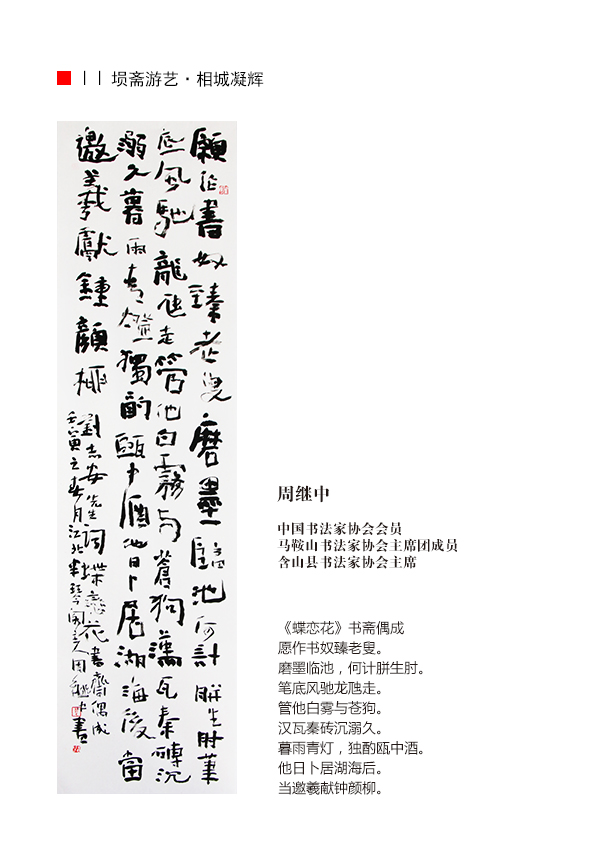 埙斋游艺·相城凝辉
願作書奴臻老叟磨墨臨池何計胼生肘筆
底風馳龍虺走管他白霧与蒼狗漢瓦秦磚沉
溺久暮雨青燈獨酌甌中酒他日卜居湖海後當
邀羲獻鍾顏柳
劉志安先生词蝶戀花書齋偶成
壬寅之春月江北半琴阁主人周繼中書
周继中
中国书法家协会会员
马鞍山书法家协会主席团成员
含山县书法家协会主席
《蝶恋花》书斋偶成
愿作书奴臻老叟。
磨墨临池，何计胼生肘。
笔底风驰龙虺走。
管他白雾与苍狗。
汉瓦秦砖沉溺久。
暮雨青灯，独酌瓯中酒。
他日卜居湖海后。
当邀羲献钟颜柳。